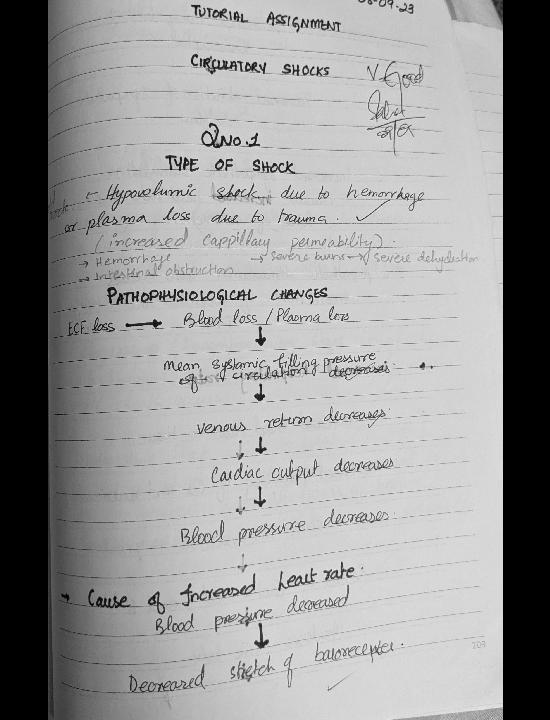 09-23
TUTORIAL ASSIGNMENT
CIRCULATORY SHOCKS
V. Good
QNO.1
TYPE OF SHOCK
- Hypovolumic shock due to hemorrhage
or plasma loss due to trauma.
(increased cappillary permeability).
→ Hemorrhage → severe burns → severe dehydration
→ Intestinal obstruction
PATHOPHYSIOLOGICAL CHANGES
ECF loss → Blood loss / Plasma loss
↓
Mean systamic filling pressure
of circulation decreases
↓
venous return decreases.
↓ ↓
Cardiac output decreases
↓ ↓
Blood pressure decreases.
↓
→ Cause of Increased heart rate.
Blood pressure decreased
↓
Decreased stretch of baroreceptor.
203